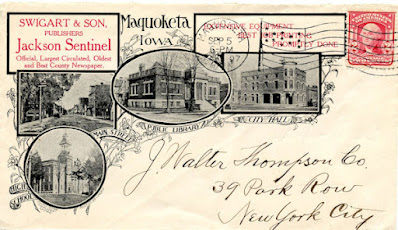 SWIGART & SON,
PUBLISHERS
Jackson Sentinel
Official, Largest Circulated, Oldest
and Best County Newspaper.
Maquoketa
Iowa
EXTENSIVE EQUIPMENT
JOB PRINTING
PROMPTLY DONE
SEP 5
6-PM
MAIN STREET
PUBLIC LIBRARY
CITY HALL
HIGH
SCHOOL
J. Walter Thompson Co.
39 Park Row
New York City